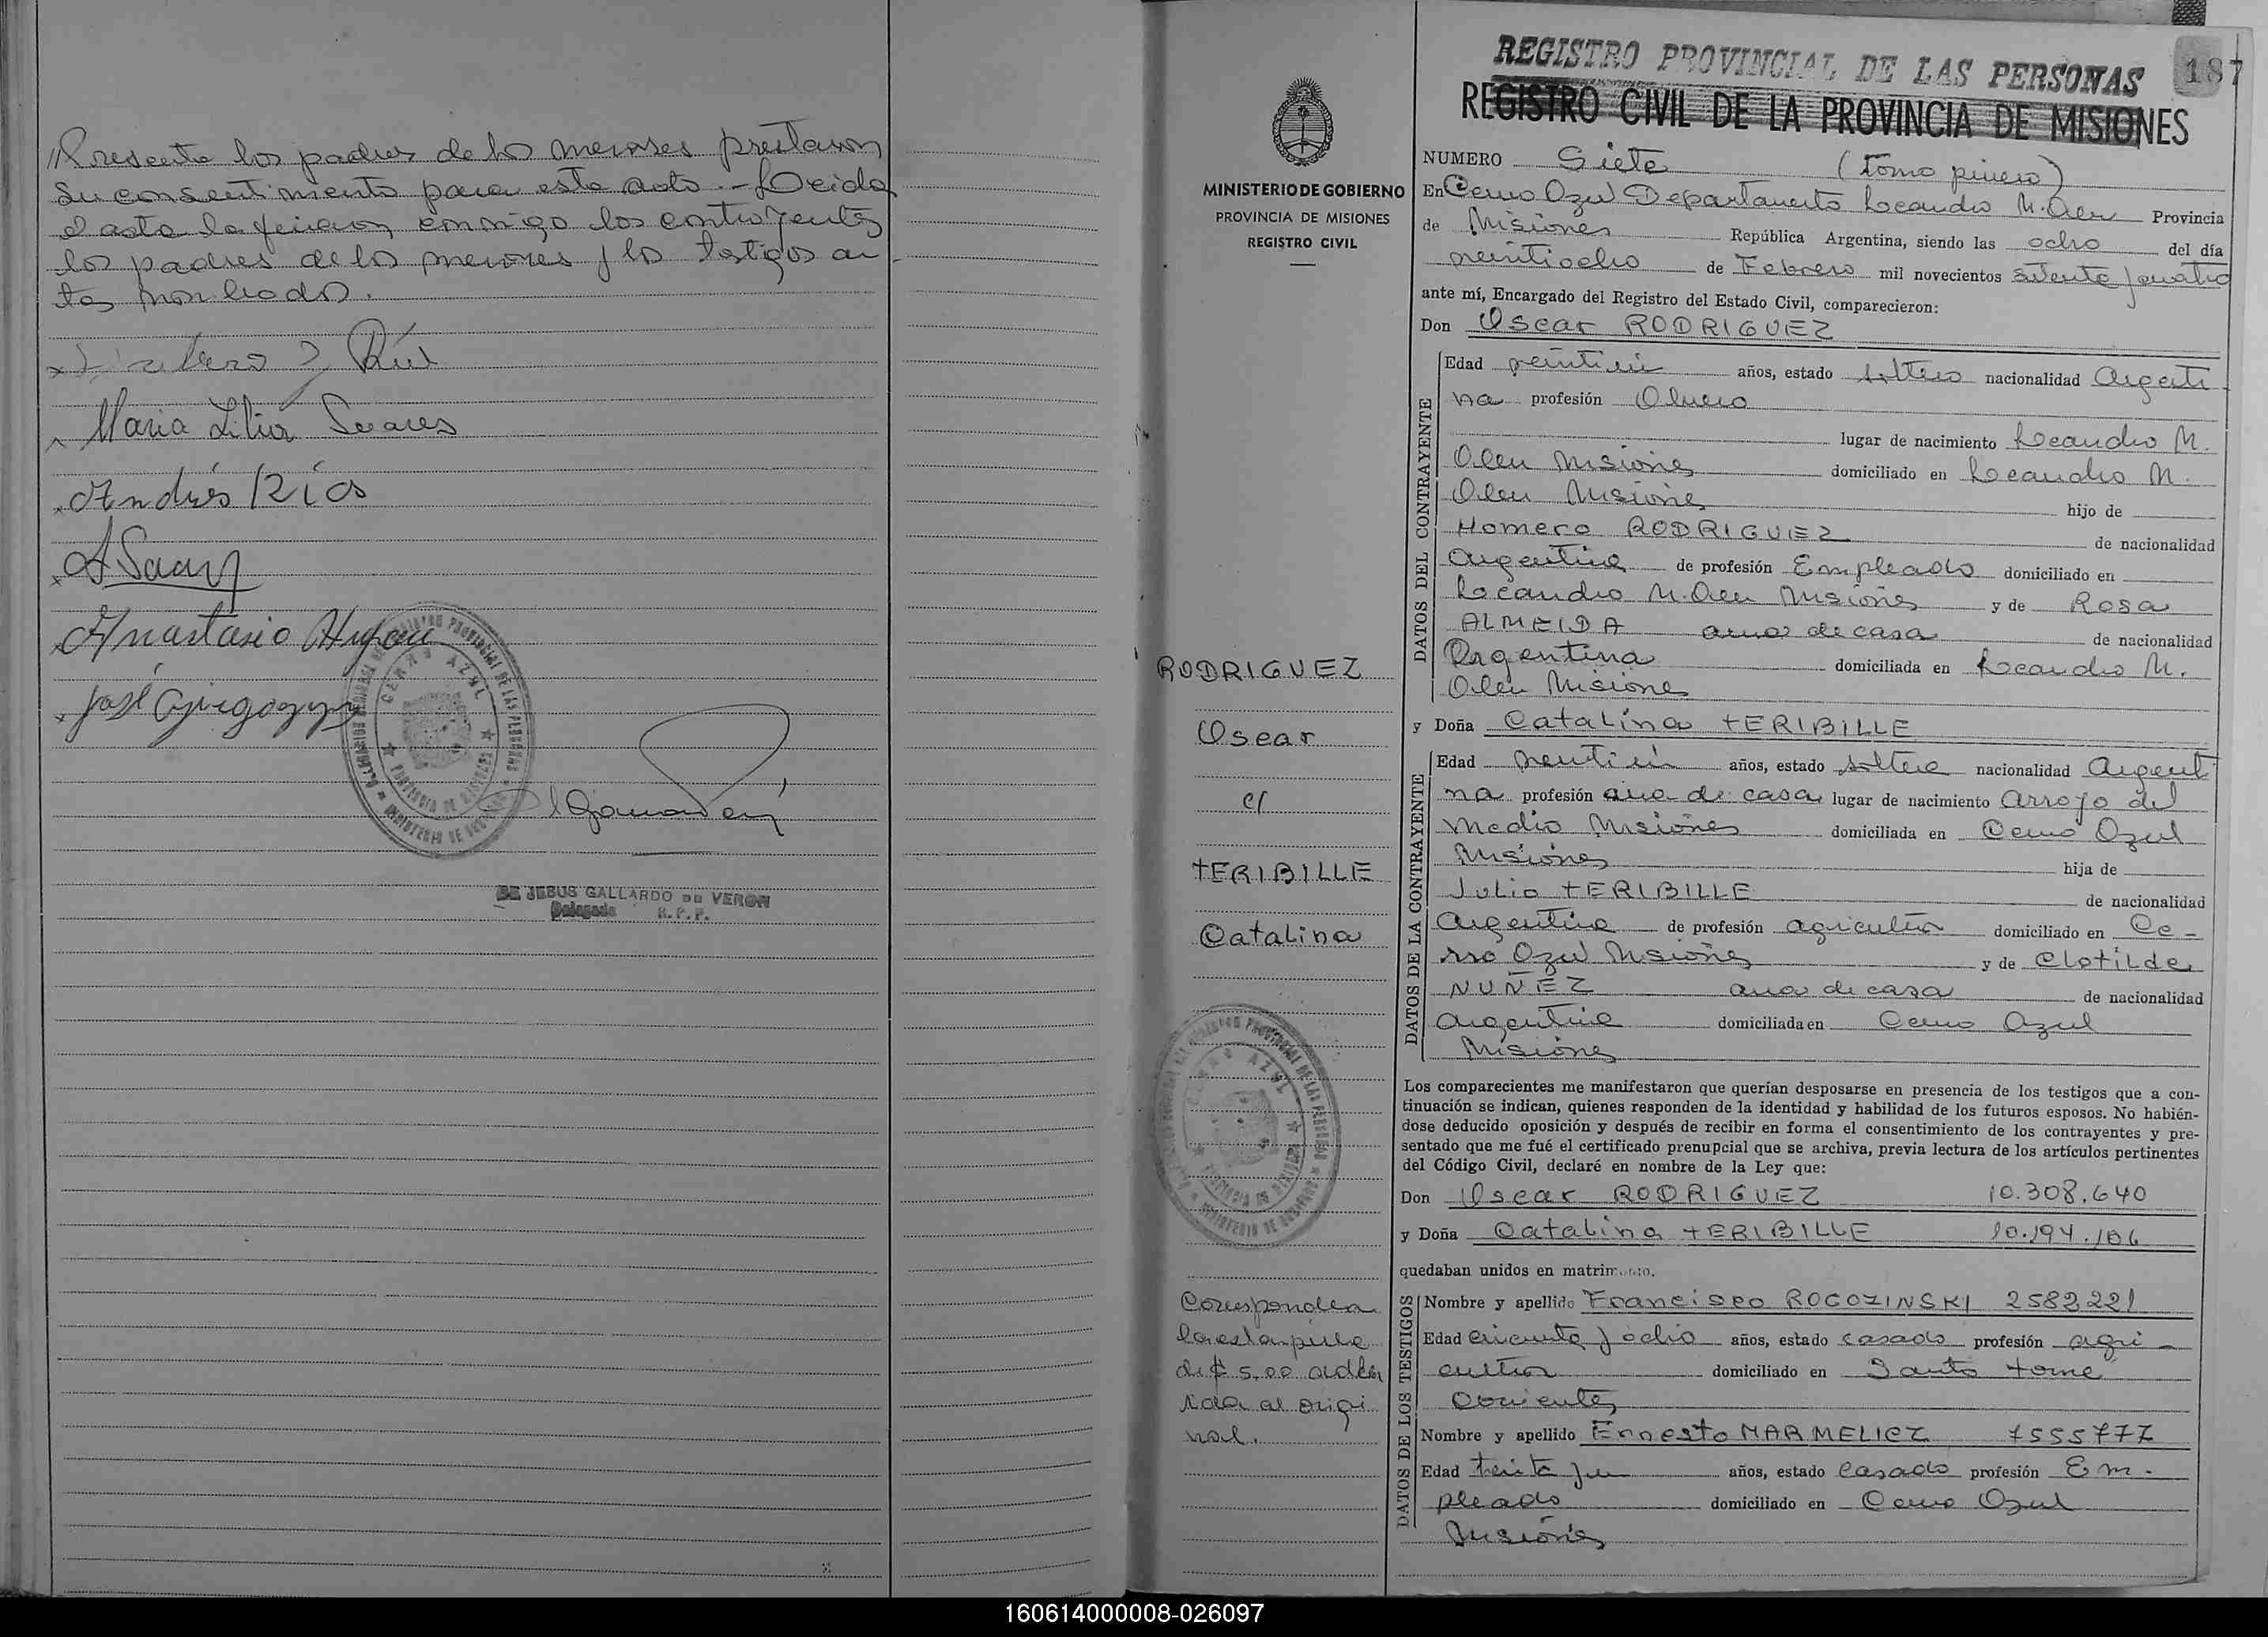 Presente los padres de los menores prestaron
su consentimiento para este acto.- Leida
el acta la firmaron conmigo los contrayentes
los padres de los menores y los testigos an
tes nombrados.
Maria Lilia Suares
Andrés Ríos
Anastasio
José
CERRO AZUL
PROVINCIA DE MISIONES
DE JESUS GALLARDO DE VERON
Delegada R.P.P.
MINISTERIO DE GOBIERNO
PROVINCIA DE MISIONES
REGISTRO CIVIL
RODRIGUEZ
Oscar
c/
TERIBILLE
Catalina
CERRO AZUL
Corresponden
la estampilla
de $ 5,00 adhe
rida al origi
nal.
REGISTRO PROVINCIAL DE LAS PERSONAS
187
REGISTRO CIVIL DE LA PROVINCIA DE MISIONES
NUMERO Siete (Tomo primero)
En Cerro Azul Departamento Leandro N. Alem Provincia
de Misiones República Argentina, siendo las ocho del día
veintiocho de Febrero mil novecientos setenta y cuatro
ante mí, Encargado del Registro del Estado Civil, comparecieron:
Don Oscar RODRIGUEZ
DATOS DEL CONTRAYENTE
Edad veintiún años, estado soltero nacionalidad Argenti
na profesión Obrero
lugar de nacimiento Leandro N.
Alem Misiones domiciliado en Leandro N.
Alem Misiones hijo de
Homero RODRIGUEZ de nacionalidad
Argentina de profesión Empleado domiciliado en
Leandro N. Alem Misiones y de Rosa
ALMEIDA ama de casa de nacionalidad
Argentina domiciliada en Leandro N.
Alem Misiones
y Doña Catalina TERIBILLE
DATOS DE LA CONTRAYENTE
Edad veintiún años, estado soltera nacionalidad Argenti
na profesión ama de casa lugar de nacimiento Arroyo del
Medio Misiones domiciliada en Cerro Azul
Misiones hija de
Julio TERIBILLE de nacionalidad
Argentina de profesión agricultor domiciliado en Ce-
rro Azul Misiones y de Clotilde
NUÑEZ ama de casa de nacionalidad
Argentina domiciliada en Cerro Azul
Misiones
Los comparecientes me manifestaron que querían desposarse en presencia de los testigos que a con-
tinuación se indican, quienes responden de la identidad y habilidad de los futuros esposos. No habién-
dose deducido oposición y después de recibir en forma el consentimiento de los contrayentes y pre-
sentado que me fué el certificado prenupcial que se archiva, previa lectura de los artículos pertinentes
del Código Civil, declaré en nombre de la Ley que:
Don Oscar RODRIGUEZ 10.308.640
y Doña Catalina TERIBILLE 10.194.106
quedaban unidos en matrimonio.
DATOS DE LOS TESTIGOS
Nombre y apellido Francisco ROGOZINSKI 2582221
Edad cincuenta y ocho años, estado casado profesión agri-
cultor domiciliado en Santo Tomé
Corrientes
Nombre y apellido Ernesto MARMELICZ 7555777
Edad treinta y un años, estado casado profesión Em-
pleado domiciliado en Cerro Azul
Misiones
160614000008-026097